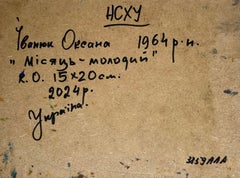 НСХУ
Іванюк Оксана 1964 р.н.
"Місяць-молодий"
К.О. 15х20 см.
2024 р.
Україна.